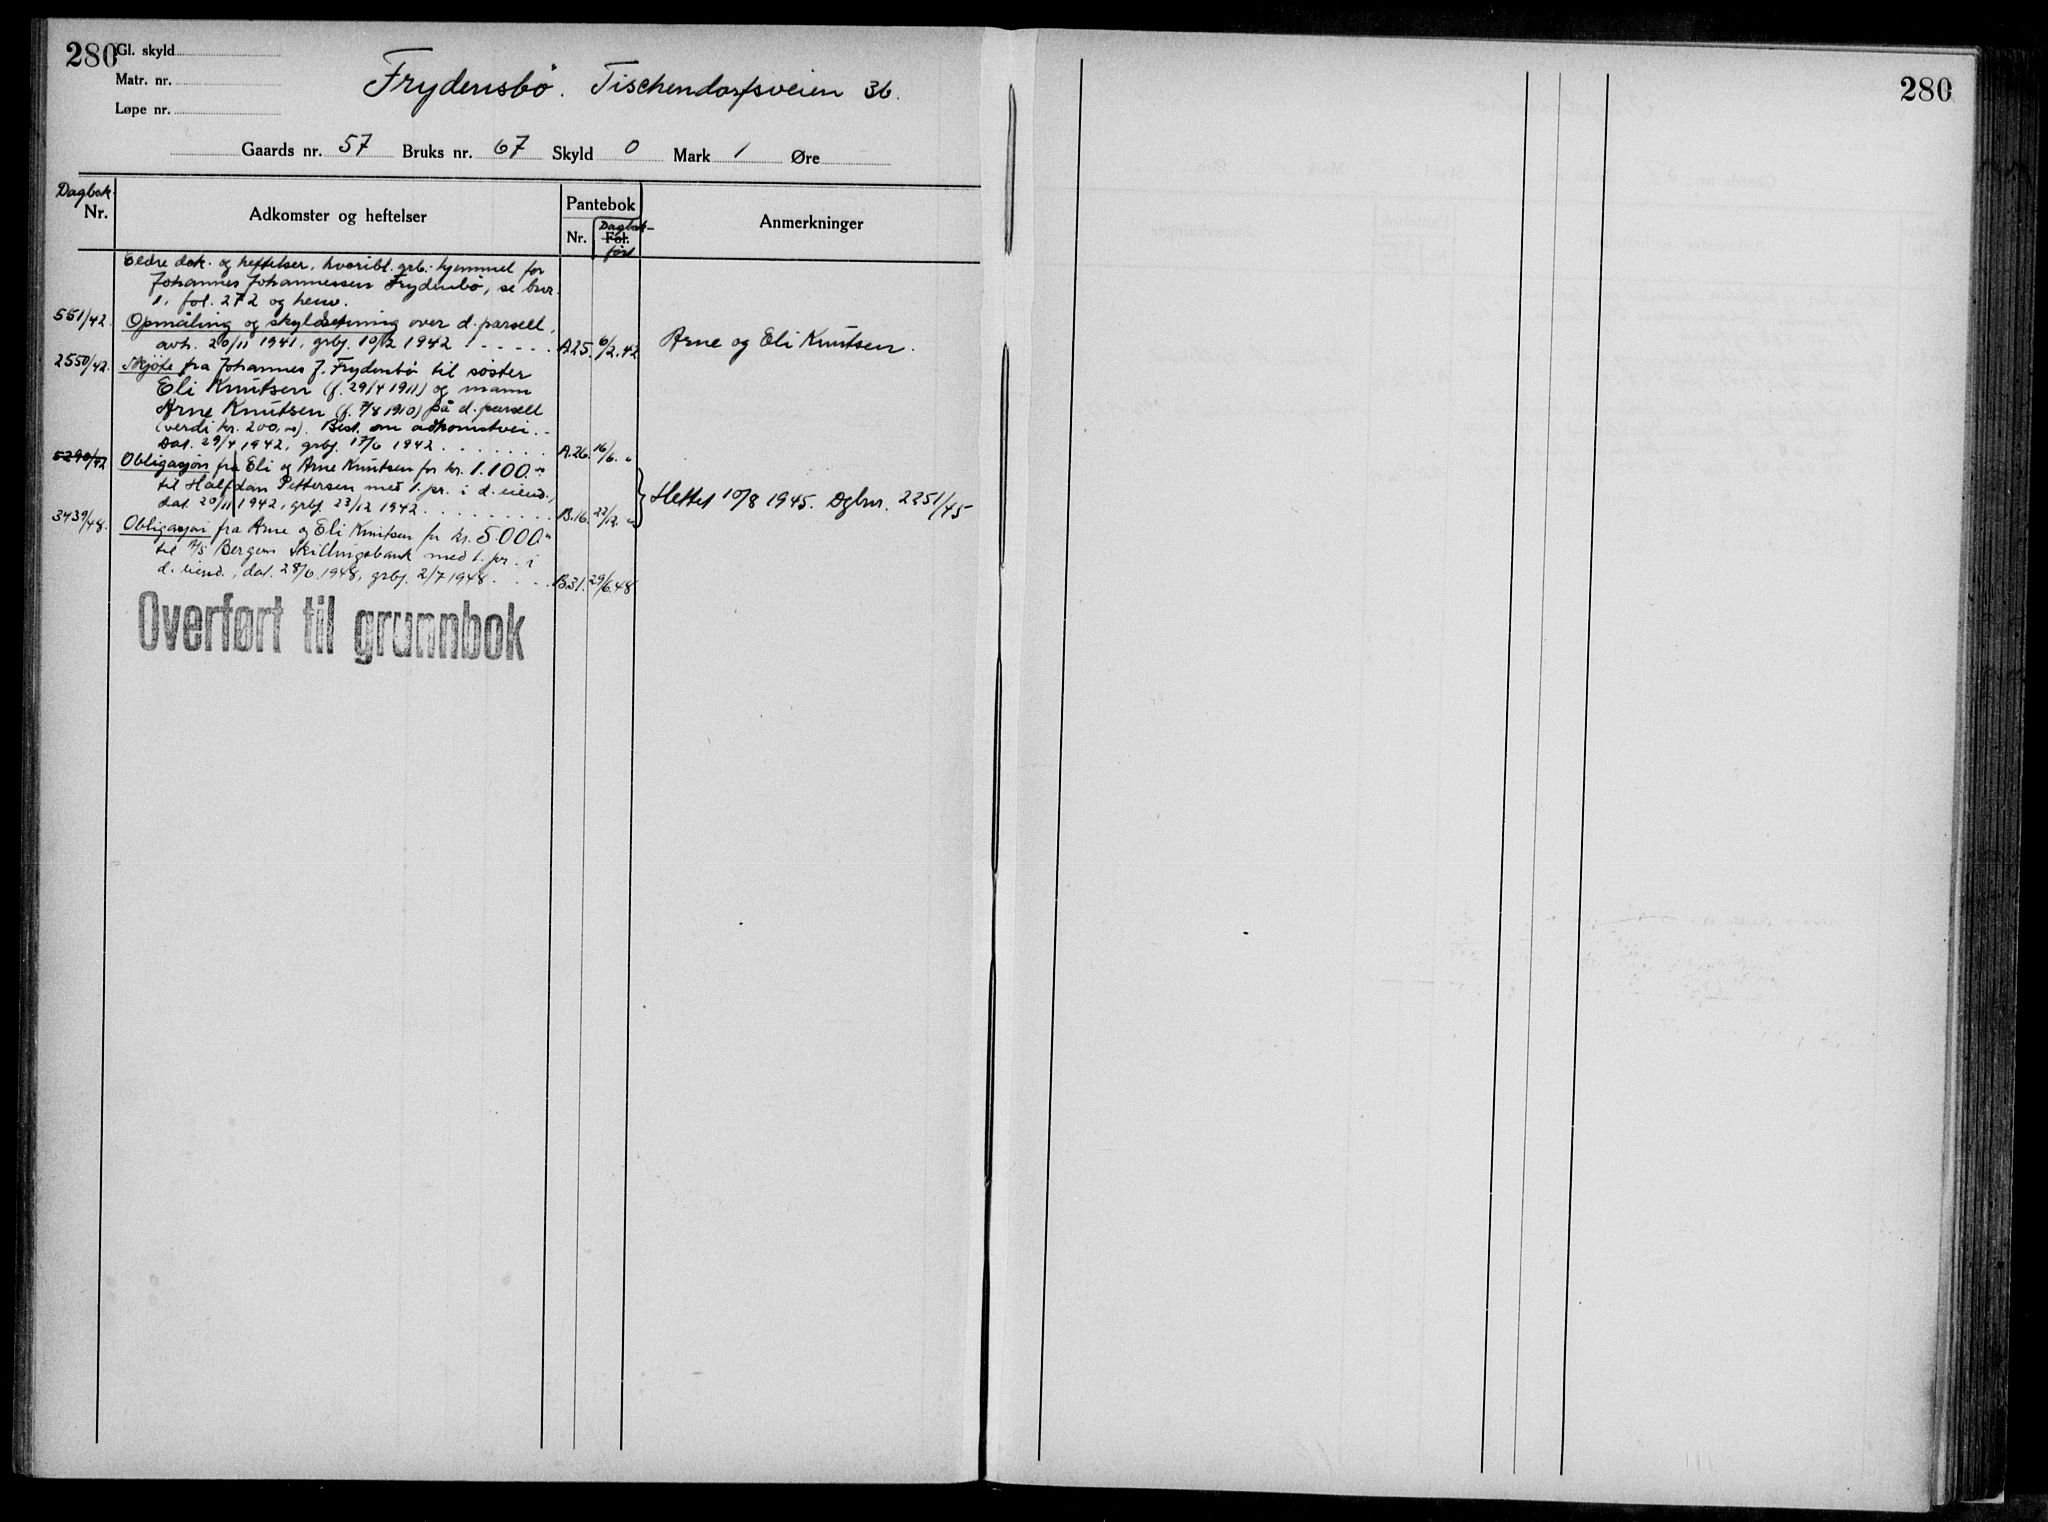 280
Gl. skyld
Matr. nr.
Løpe nr.
Frydensbø. Tischendorfsveien 36.
Gaards nr. 57 Bruks nr. 67 Skyld 0 Mark 1 Øre
Dagbok
Nr.
Adkomster og heftelser
Pantebok
Nr.
Fol.
Dagbok-
ført
Anmerkninger
Eldre dok. og heftelser, hvoribl. grb. hjemmel for
Johannes Johannessen Frydenbø, se bnr.
1, fol. 272 og henv.
551/42. Opmåling og skyldsetning over d. parsell,
avh. 20/11 1941, grbf. 10/2 1942 A25. 6/2.42 Arne og Eli Knutsen.
2550/42. Skjøte fra Johannes J. Frydenbø til søster
Eli Knutsen (f. 29/4 1911) og mann
Arne Knutsen (f. 7/8 1910) på d. parsell
(verdi kr. 200,00). Best. om adkomstvei.
Dat. 29/4 1942, grbf. 17/6 1942 A.26. 16/6. "
5290/42 Obligasjon fra Eli og Arne Knutsen for kr. 1.100.-
til Halfdan Pettersen med 1. pr. i d. eiend.,
dat. 20/11 1942, grbf. 23/12 1942 B.16. 22/12. " Slettet 10/8 1945. Dgbnr. 2251/45
3439/48. Obligasjon fra Arne og Eli Knutsen for kr. 5.000.-
til A/S Bergens Skillingsbank med 1. pr. i
d. eiend., dat. 28/6 1948, grbf. 2/7 1948 B.31. 29/6.48
Overført til grunnbok
280